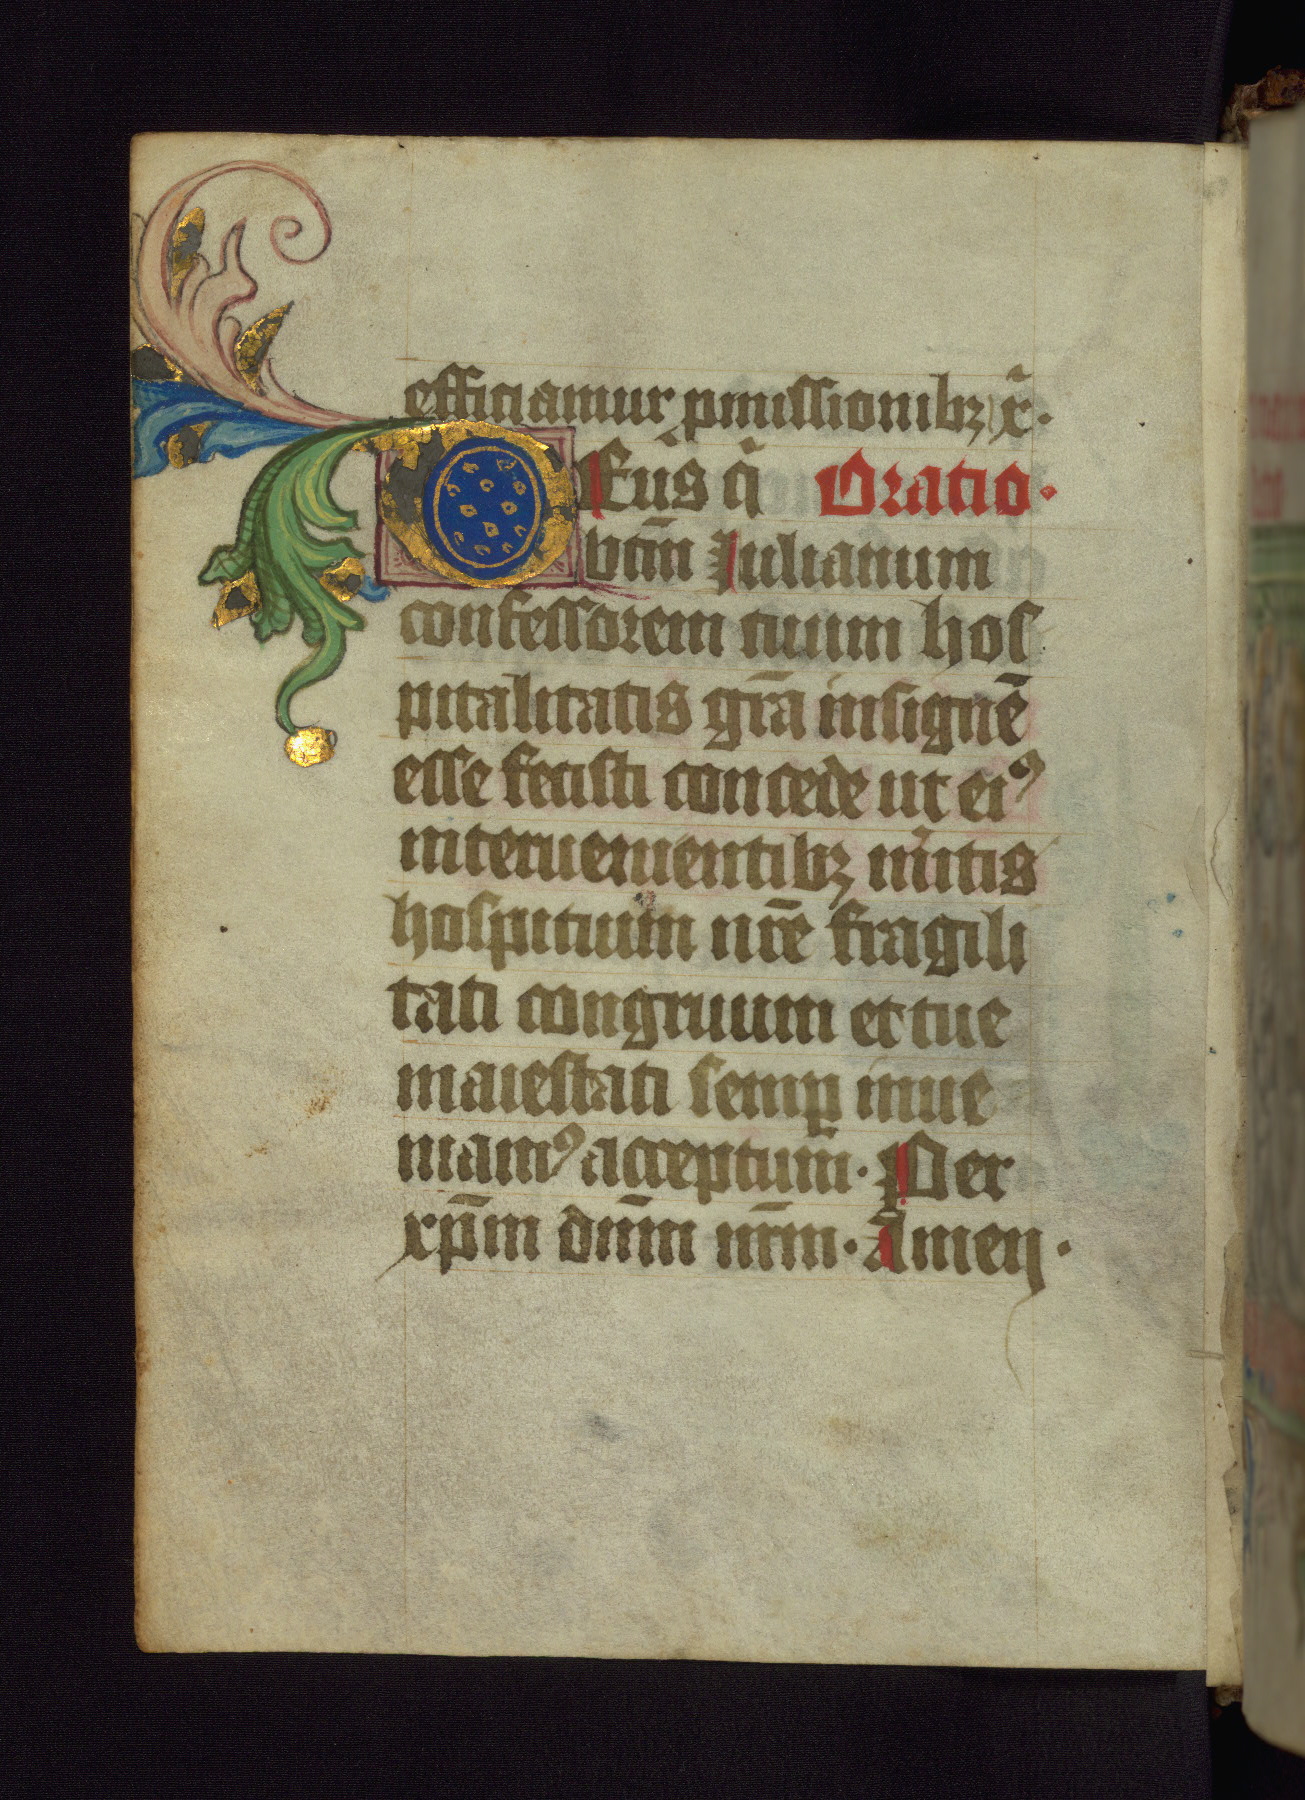 efficiamur p̄missionibꝫ xͥ.
DEus q̄ Oratio.
btm̄ Iulianum
confessorem tuum hos
pitalitatis gr̄a insignē
esse fecisti concede ut eiꝰ
interuenientibꝫ mͥtis
hospitium nr̄e fragili
tati congruum et tue
maiestati semꝑ inue
niamꝰ acceptum. Per
xp̄m dn̄m nr̄m. Amen.